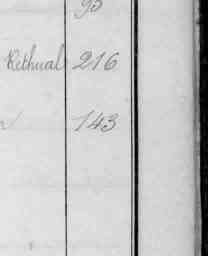 95
Rethual 216
143